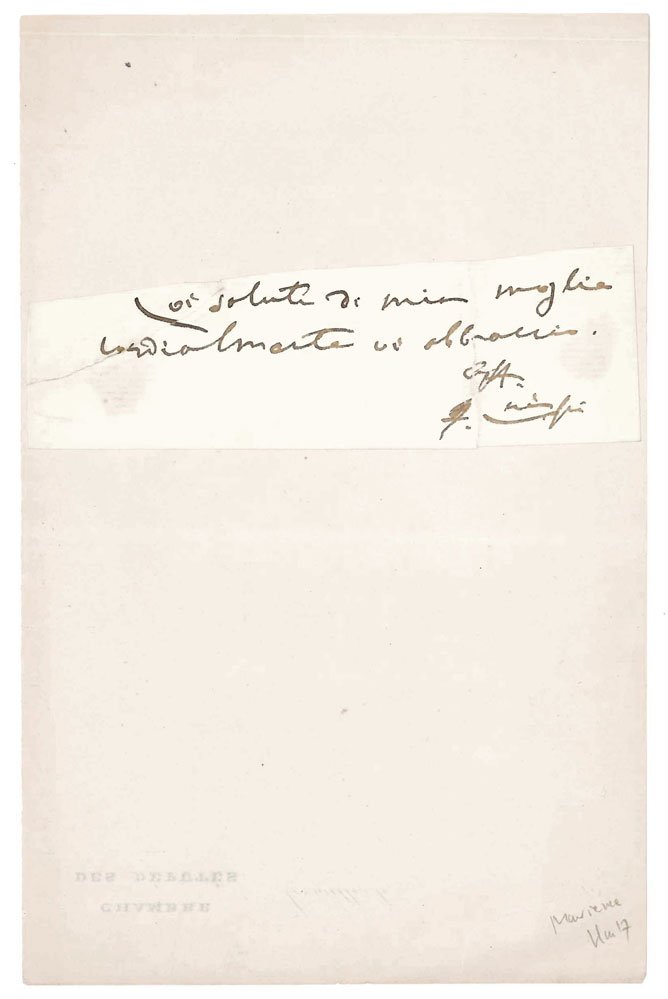 Coi saluti di mia moglie
cordialmente vi abbraccio.
aff.
F. Crispi
CHAMBRE
DES DÉPUTÉS